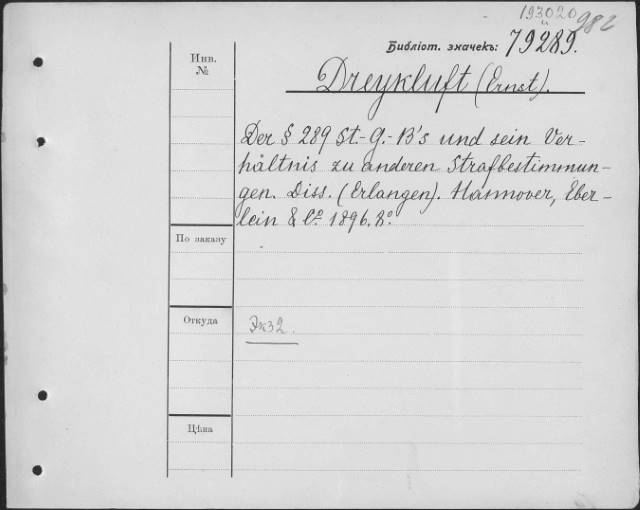 193020
u 982
Библіот. значекъ: 79289.
Инв.
№
Dreykluft (Ernst).
Der § 289 St.-G.-B's und sein Ver-
hältnis zu anderen Strafbestimmun-
gen. Diss. (Erlangen). Hannover, Eber-
lein & Cº 1896. 8º.
По заказу
Откуда
Экз2.
Цѣна